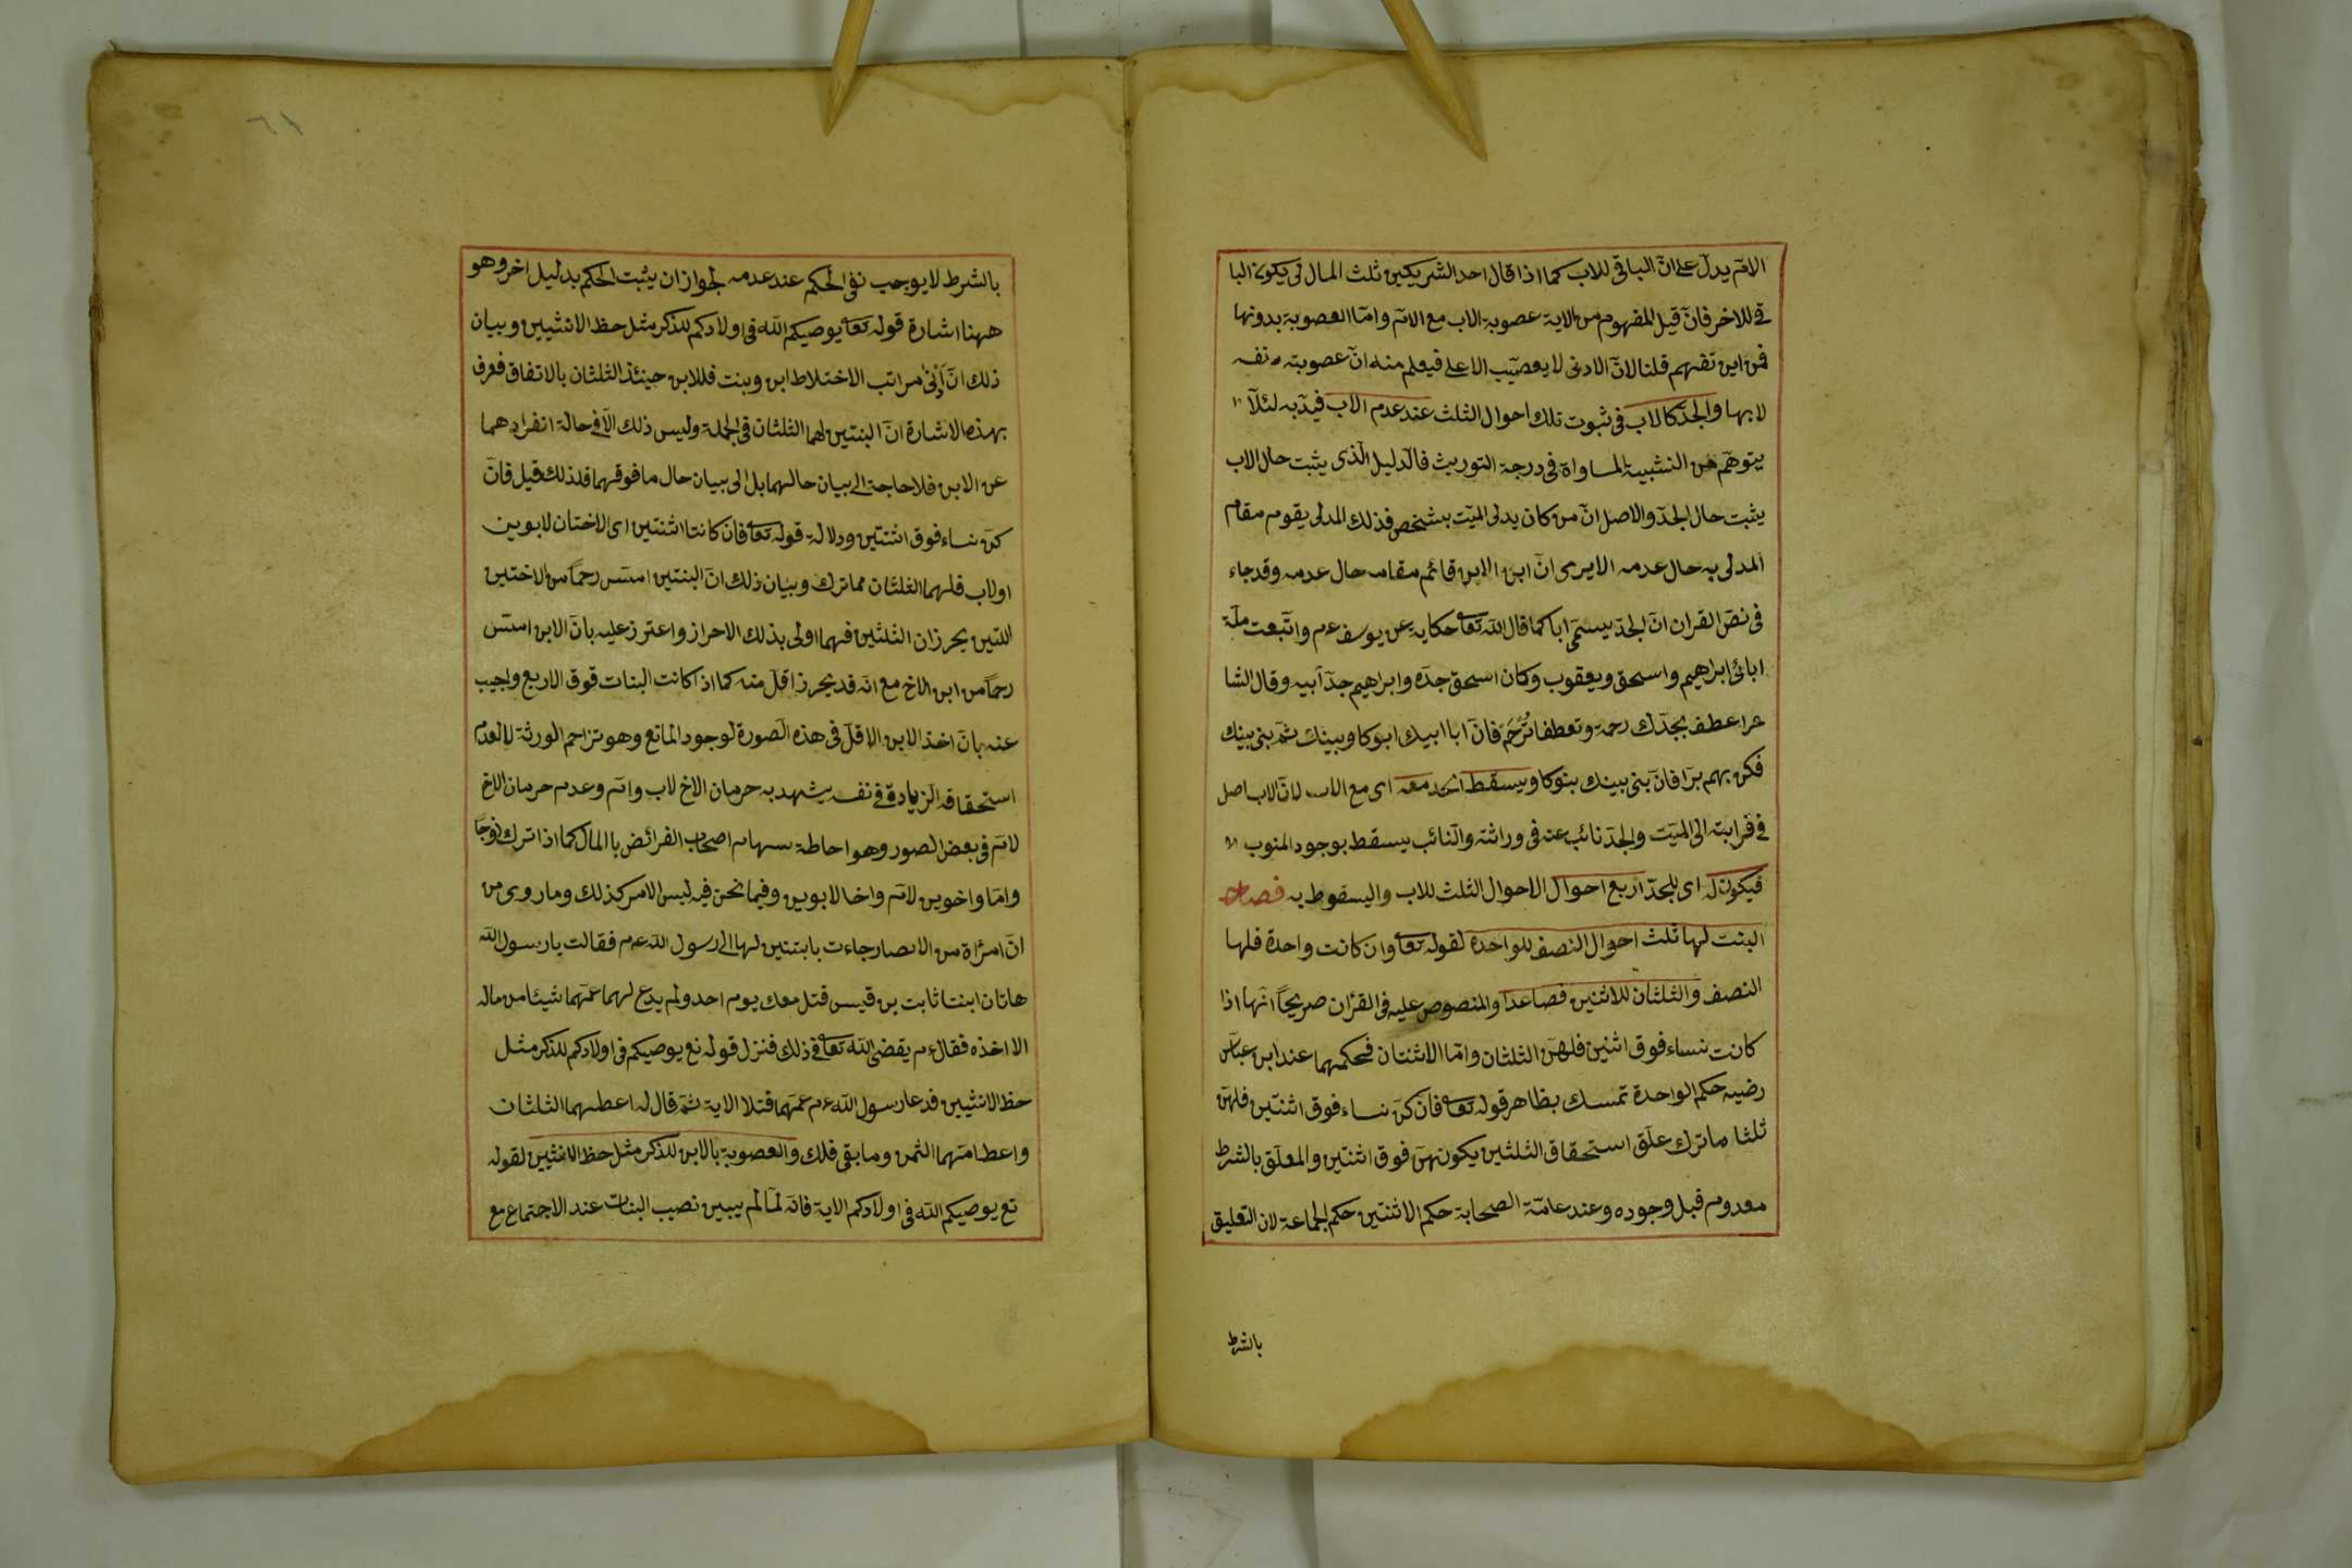 الامّ يدلّ على انّ الباقى للاب كما اذا قال احد الشريكين ثلث المال لى يكون البا
قى للاخر فانّ قيل المفهوم من الاية عصوبة الاب مع الامّ وامّا العصوبة بدونها
فمن اين تفهم قلنا لانّ الادنى لا يعصّب الاعلى فيعلم منه انّ عصوبته بنفسه
لا بها والجدّ كالاب فى ثبوت تلك احوال الثلث عند عدم الاب قيّد به لئلّا
يتوهّم من التشبيه المساواة فى درجة التوريث فالدليل الّذى يثبت حال الاب
يثبت حال الجدّ والاصل انّ من كان يدلى الميّت بشخص فذلك المدلى يقوم مقام
المدلى به حال عدمه الا يرى انّ ابن الابن قائم مقامه حال عدمه وقد جاء
فى نصّ القران انّ الجدّ يسمّى ابا كما قال الله تعا حكاية عن يوسف عم واتّبعت ملّة
ابائى ابراهيم واسحق ويعقوب وكان اسحق جدّه وابراهيم جدّ ابيه وقال الشا
عر اعطف بجدّك رحمة وتعطفا تُرْحَمْ فانّ ابا ابيك ابوكا وبينك ثمّ بنى بينك
فكن بهم برّا فانّ بنى بينك بنوكا ويسقط الجد معه اى مع الاب لانّ الاب اصل
فى قرابته الى الميّت والجدّ نائب عنه فى وراثته والنّائب يسقط بوجود المنوب
فيكون له اى للجدّ اربع احوال الاحوال الثلث للاب والسقوط به فصل
البنت لها ثلث احوال النصف للواحدة لقوله تعا وان كانت واحدة فلها
النصف والثلثان للاثنين فصاعدا والمنصوص عليه فى القرٔان صريحًا انّها اذا
كانت نساء فوق اثنين فلهنّ الثلثان وامّا الاثنتان فحكمهما عند ابن عباس
رضيه حكم الواحدة تمسك بظاهر قوله تعا فان كنّ نساء فوق اثنتين فلهنّ
ثلثا ما ترك علّق استحقاق الثلثين يكونهنّ فوق اثنتين والمعلّق بالشرط
معدوم قبل وجوده وعند عامّة الصحابة حكم الاثنتين حكم الجماعة لان التعليق
بالشرط
٦١
بالشرط لا يوجب نفى الحكم عند عدمه لجواز ان يثبت الحكم بدليل اخر وهو
ههنا اشارة قوله تعا يوصيكم الله فى اولادكم للذكر مثل حظ الانثيين وبيان
ذلك انّ ادنى مراتب الاختلاط ابن وبنت فللابن حينئذ الثلثان بالاتفاق فعرف
بهذه الاشارة انّ البنتين لهما الثلثان فى الجملة وليس ذلك الّا فى حالة انفرادهما
عن الابن فلا حاجة الى بيان حالهما بل الى بيان حال ما فوقهما فلذلك قيل فانّ
كنّ نساء فوق اثنتين ودلالة قوله تعا فان كانتا اثنتين اى الاختان لابوين
اولاب فلهما الثلثان مما ترك وبيان ذلك انّ البنتين امسّ رحماً من الاختين
اللتين يحرزان الثلثين فهما اولى بذلك الاحراز واعترز عليه بانّ الابن امسّ
رحماً من ابن الاخ مع انّه قد يحرز اقلّ منه كما اذا كانت البنات فوق الاربع واجيب
عنه بانّ اخذ الابن الاقلّ فى هذه الصورة لوجود المانع وهو تزاحم الورثة لا لعدم
استحقاقه الزيادة فى نفسه يشهد به حرمان الاخ لاب وامّ وعدم حرمان الاخ
لامّ فى بعض الصور وهو احاطة سهام اصحاب الفرائض با المال كما اذا ترك زوجًا
وامّا واخوين لامّ واخا لابوين وفيما نحن فيه ليس الامر كذلك وما روى من
انّ امرأة من الانصار جاءت بابنتين لها الى رسول الله عم فقالت يا رسول الله
هاتان ابنتا ثابت بن قيس قتل معك يوم احد ولم يدع لهما عمّهما شيئا من ماله
الا اخذه فقال عم يقضى الله تعا فى ذلك فنزل قوله تع يوصيكم فى اولادكم للذكر مثل
حظ الانثيين فدعا رسول الله عم عمّهما فتلا الاية ثمّ قال له اعطهما الثلثان
واعط امّهما الثمن وما بقى فلك والعصوبة بالابن للذكر مثل حظ الانثيين لقوله
تع يوصيكم الله فى اولادكم الاية فانّه لمّا لم يبين نصيب البنات عند الاجتماع مع